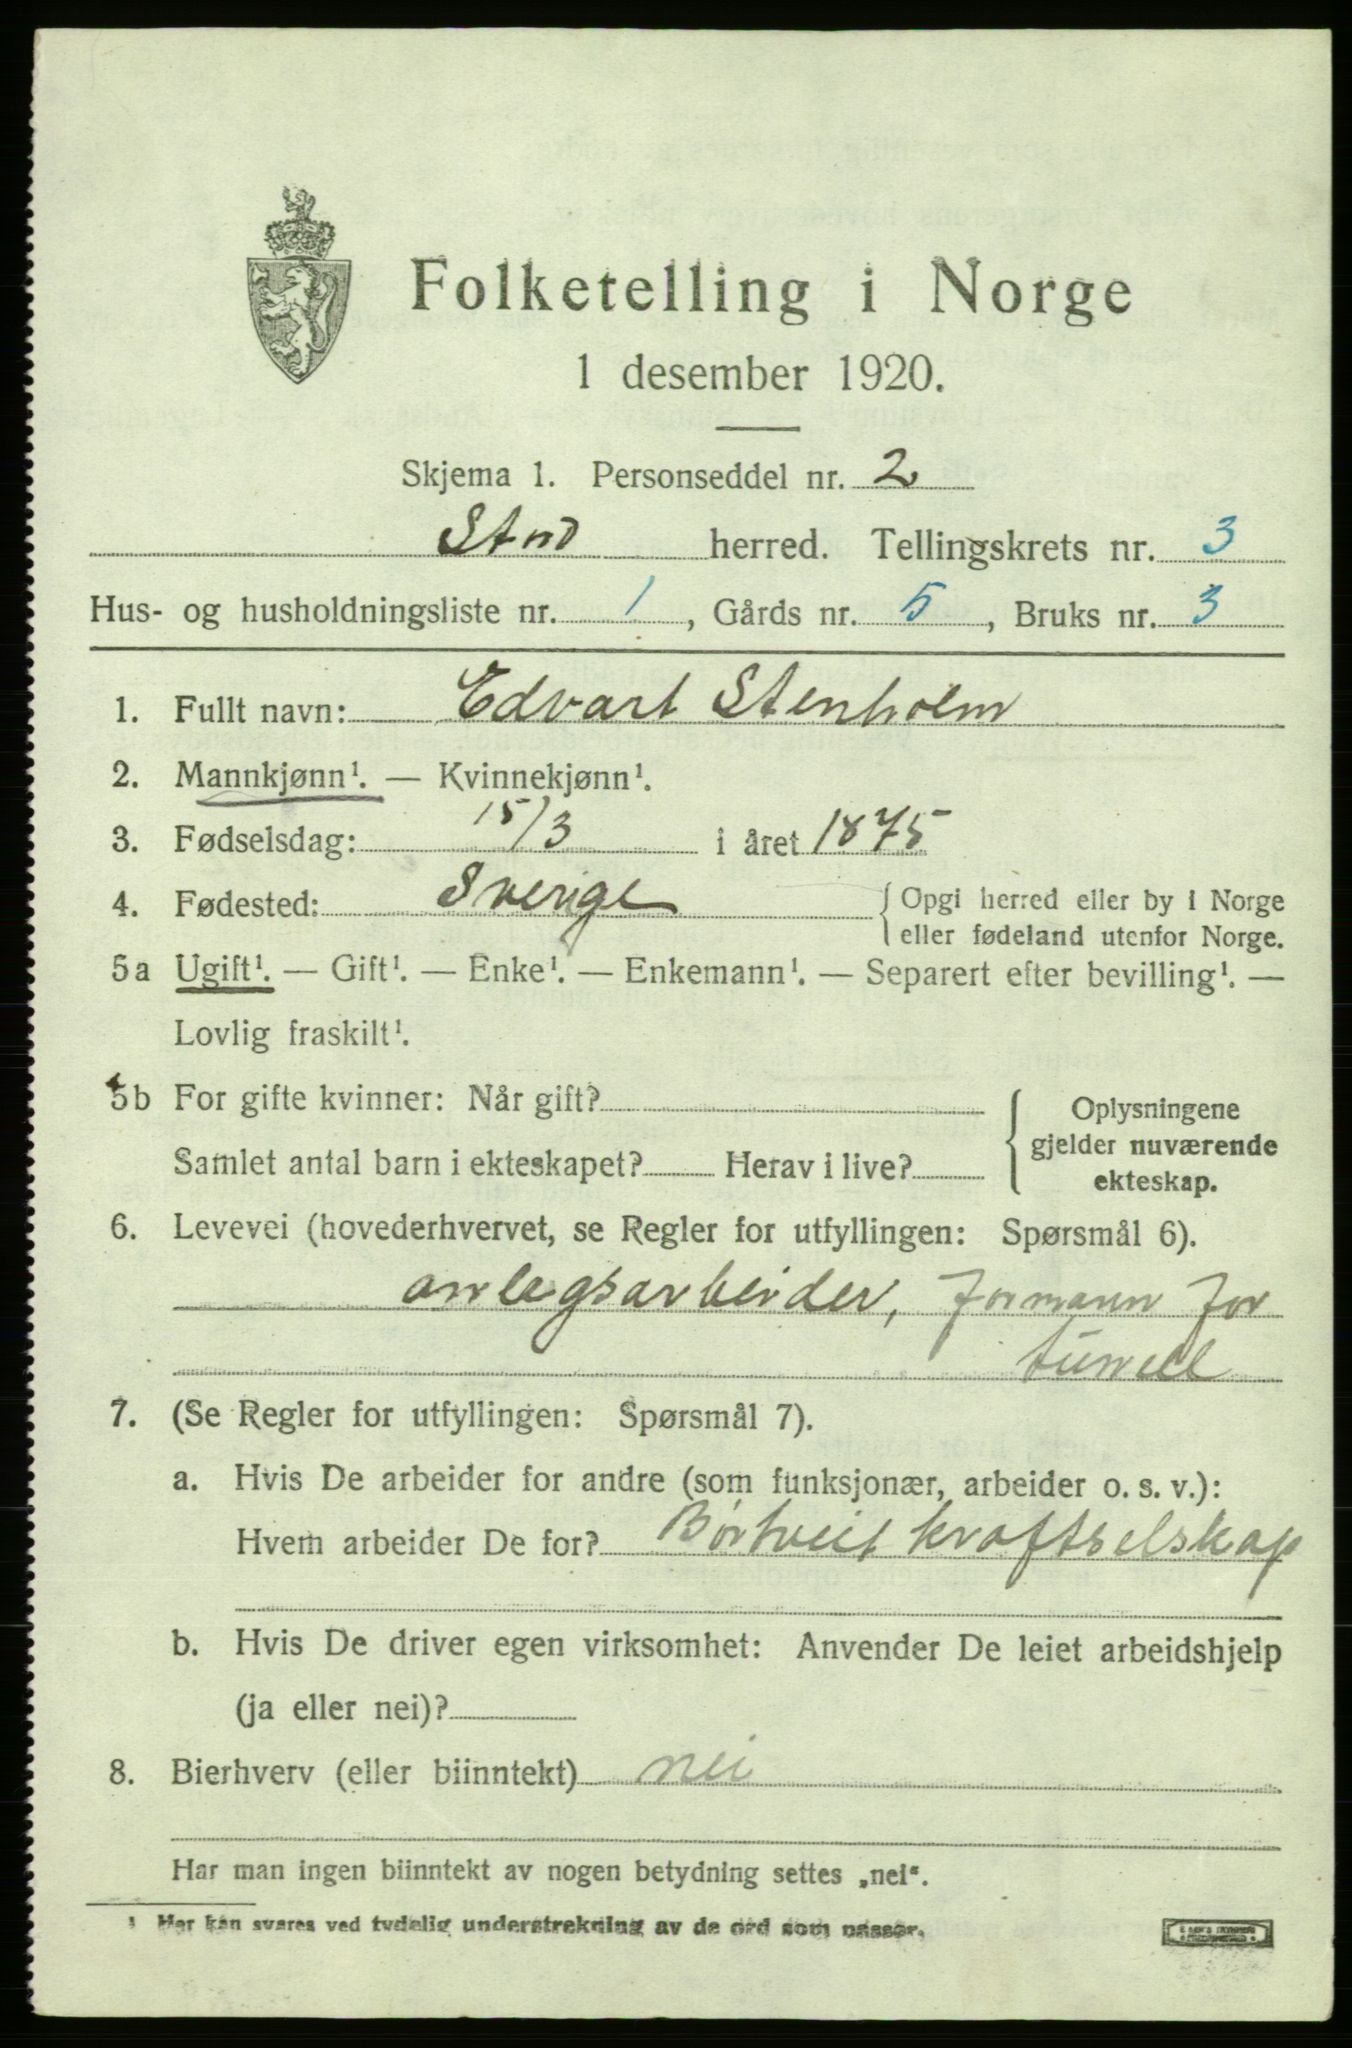 Folketelling i Norge
1 desember 1920.
Skjema 1. Personseddel nr. 2
Stord herred. Tellingskrets nr. 3
Hus- og husholdningsliste nr. 1, Gårds nr. 5, Bruks nr. 3
1. Fullt navn: Edvart Stenholm
2. Mannkjønn¹. — Kvinnekjønn¹.
3. Fødselsdag: 15/3 i året 1875
4. Fødested: Sverige { Opgi herred eller by i Norge
eller fødeland utenfor Norge.
5a Ugift¹. — Gift¹. — Enke¹. — Enkemann¹. — Separert efter bevilling¹. —
Lovlig fraskilt¹.
5b For gifte kvinner: Når gift?
Samlet antal barn i ekteskapet? Herav i live?
Oplysningene
gjelder nuværende
ekteskap.
6. Levevei (hovederhvervet, se Regler for utfyllingen: Spørsmål 6).
anlegsarbeider, formann for
tunell
7. (Se Regler for utfyllingen: Spørsmål 7).
a. Hvis De arbeider for andre (som funksjonær, arbeider o. s. v.):
Hvem arbeider De for? Børtveit kraftselskap
b. Hvis De driver egen virksomhet: Anvender De leiet arbeidshjelp
(ja eller nei)?
8. Bierhverv (eller biinntekt) nei
Har man ingen biinntekt av nogen betydning settes „nei“.
¹ Her kan svares ved tydelig understrekning av de ord som passer.